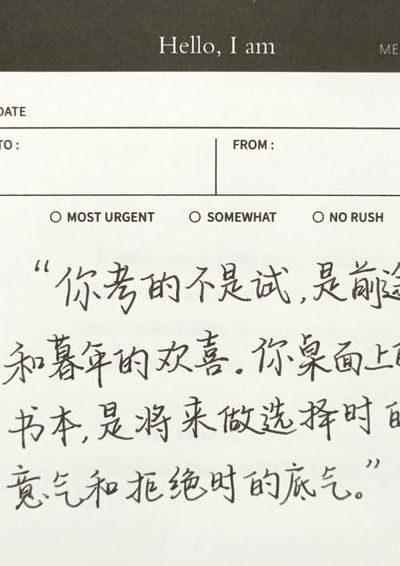 Hello, I am
ME
DATE
TO :
FROM :
MOST URGENT
SOMEWHAT
NO RUSH
“你考的不是试,是前途
和暮年的欢喜。你桌面上的
书本,是将来做选择时的
意气和拒绝时的底气。”